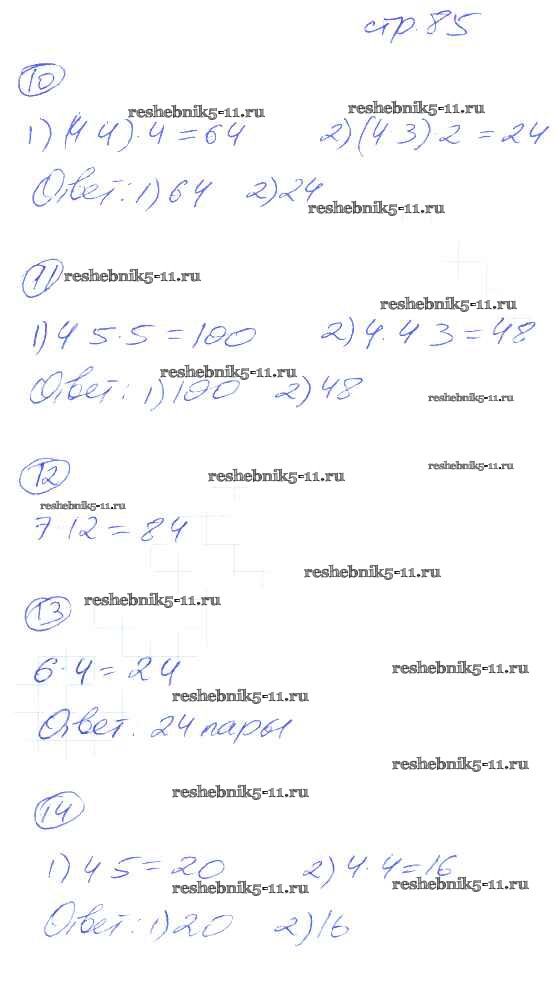 стр. 85
10
reshebnik5-11.ru reshebnik5-11.ru
1) (4 4)·4 = 64 2) (4 3)·2 = 24
Ответ: 1) 64 2) 24
reshebnik5-11.ru
11 reshebnik5-11.ru
reshebnik5-11.ru
1) 4 5·5 = 100 2) 4·4 3 = 48
reshebnik5-11.ru
Ответ: 1) 100 2) 48
reshebnik5-11.ru
reshebnik5-11.ru
12 reshebnik5-11.ru
reshebnik5-11.ru
7·12 = 84
reshebnik5-11.ru
13 reshebnik5-11.ru
6·4 = 24 reshebnik5-11.ru
reshebnik5-11.ru
Ответ: 24 пары
reshebnik5-11.ru
reshebnik5-11.ru
14
1) 4 5 = 20 2) 4·4 = 16
reshebnik5-11.ru reshebnik5-11.ru
Ответ: 1) 20 2) 16